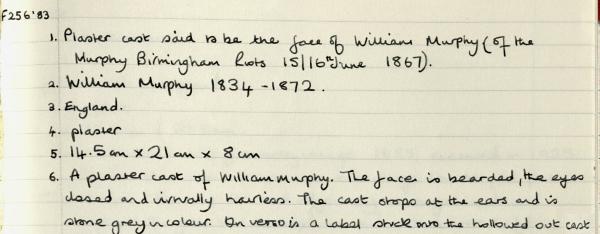 F256'83
1. Plaster cast said to be the face of William Murphy (of the
Murphy Birmingham Riots 15/16th June 1867).
2. William Murphy 1834-1872.
3. England.
4. plaster
5. 14.5cm x 21cm x 8cm
6. A plaster cast of William Murphy. The face is bearded, the eyes
closed and virtually hairless. The cast stops at the ears and is
stone grey in colour. On verso is a label stuck onto the hollowed out cast